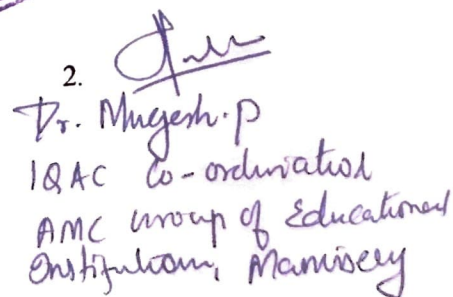 2.
Dr. Mugesh. P
IQAC Co-ordinator
AMC Group of Educational
Institutions,